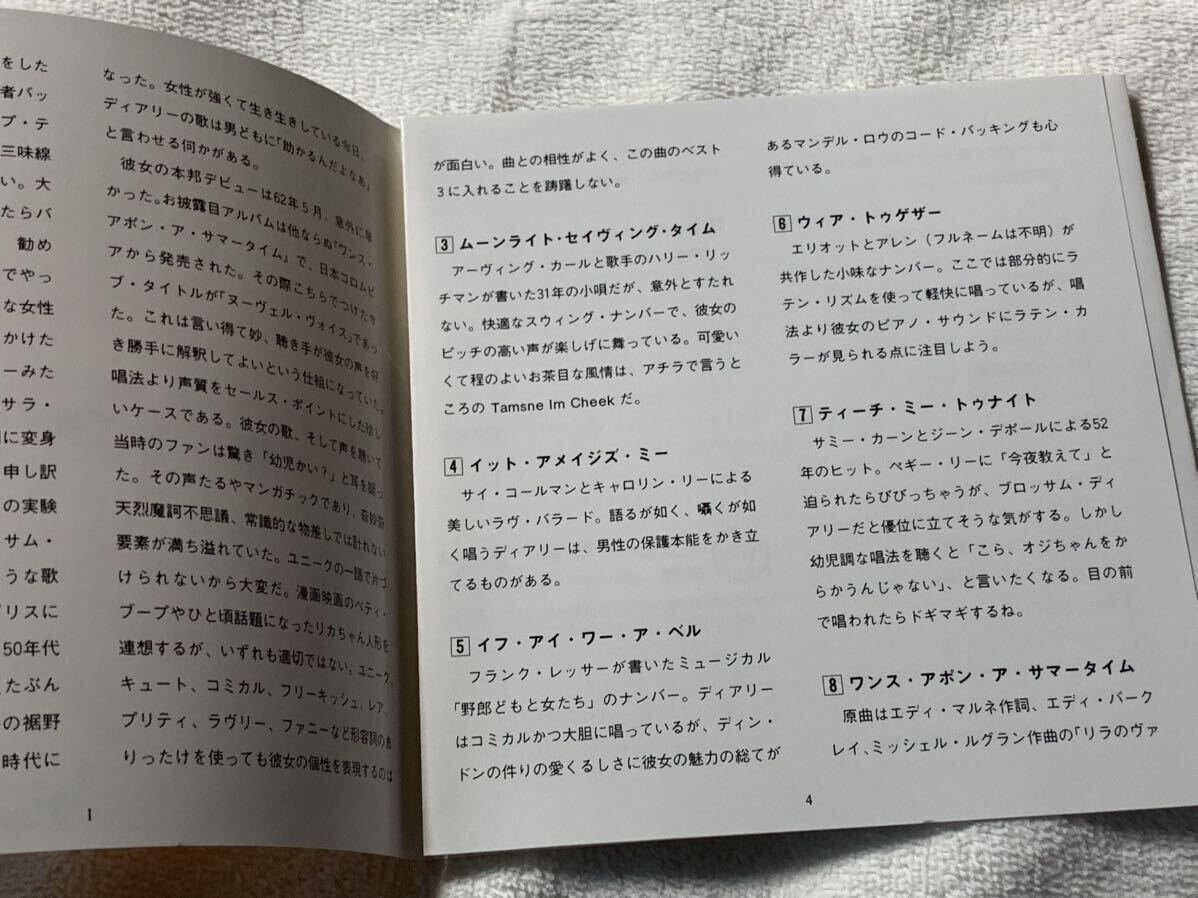 をした
者バッ
ブ・テ
三味線
い。大
たらバ
勧め
でやっ
な女性
かけた
ーみた
サラ・
に変身
申し訳
の実験
サム・
うな歌
ギリスに
50年代
たぶん
の裾野
時代に
なった。女性が強くて生き生きしている今日、
ディアリーの歌は男どもに「助かるんだよなあ」
と言わせる何かがある。
彼女の本邦デビューは62年5月、意外に早
かった。お披露目アルバムは他ならぬ「ワンス・
アポン・ア・サマータイム」で、日本コロムビ
アから発売された。その際こちらでつけたサ
ブ・タイトルが「ヌーヴェル・ヴォイス」であっ
た。これは言い得て妙、聴き手が彼女の声を好
き勝手に解釈してよいという仕組になっていた。
唱法より声質をセールス・ポイントにした珍し
いケースである。彼女の歌、そして声を聴いて
当時のファンは驚き「幼児かい?」と耳を疑っ
た。その声たるやマンガチックであり、奇妙奇
天烈魔訶不思議、常識的な物差しでは計れない
要素が満ち溢れていた。ユニークの一語で片づ
けられないから大変だ。漫画映画のベティ・
ブープやひと頃話題になったリカちゃん人形を
連想するが、いずれも適切ではない。ユニーク、
キュート、コミカル、フリーキッシュ、レア、
プリティ、ラヴリー、ファニーなど形容詞のあ
りったけを使っても彼女の個性を表現するのは
1
が面白い。曲との相性がよく、この曲のベスト
3に入れることを躊躇しない。
3 ムーンライト・セイヴィング・タイム
アーヴィング・カールと歌手のハリー・リッ
チマンが書いた31年の小唄だが、意外とすたれ
ない。快適なスウィング・ナンバーで、彼女の
ピッチの高い声が楽しげに舞っている。可愛い
くて程のよいお茶目な風情は、アチラで言うと
ころの Tamsne Im Cheek だ。
4 イット・アメイジズ・ミー
サイ・コールマンとキャロリン・リーによる
美しいラヴ・バラード。語るが如く、囁くが如
く唱うディアリーは、男性の保護本能をかき立
てるものがある。
5 イフ・アイ・ワー・ア・ベル
フランク・レッサーが書いたミュージカル
「野郎どもと女たち」のナンバー。ディアリー
はコミカルかつ大胆に唱っているが、ディン・
ドンの件りの愛くるしさに彼女の魅力の総てが
あるマンデル・ロウのコード・バッキングも心
得ている。
6 ウィア・トゥゲザー
エリオットとアレン（フルネームは不明）が
共作した小味なナンバー。ここでは部分的にラ
テン・リズムを使って軽快に唱っているが、唱
法より彼女のピアノ・サウンドにラテン・カ
ラーが見られる点に注目しよう。
7 ティーチ・ミー・トゥナイト
サミー・カーンとジーン・デポールによる52
年のヒット。ペギー・リーに「今夜教えて」と
迫られたらびびっちゃうが、ブロッサム・ディ
アリーだと優位に立てそうな気がする。しかし
幼児調な唱法を聴くと「こら、オジちゃんをか
らかうんじゃない」、と言いたくなる。目の前
で唱われたらドギマギするね。
8 ワンス・アポン・ア・サマータイム
原曲はエディ・マルネ作詞、エディ・バーク
レイ、ミッシェル・ルグラン作曲の「リラのヴァ
4